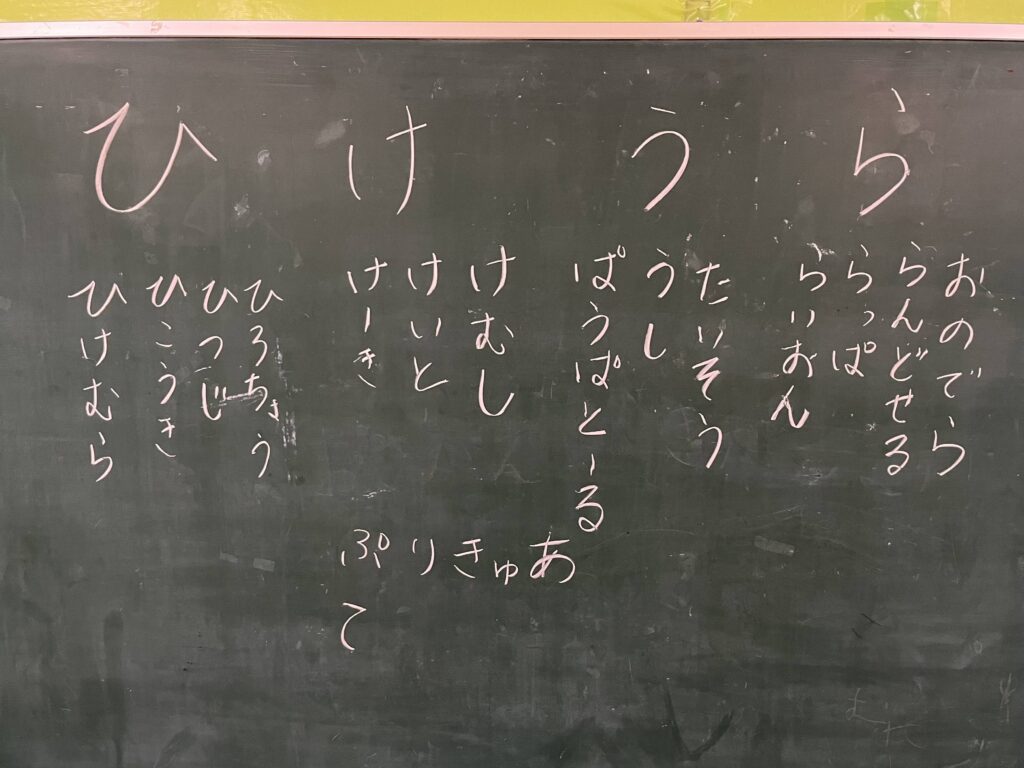 ひ け う ら
おのでら
らんどせる
らっぱ
らいおん
たいそう
うし
ぱうぱとーる
けむし
けいと
けーき
ひろちょう
ひつじ
ひこうき
ひけむら
ぷりきゅあ
て